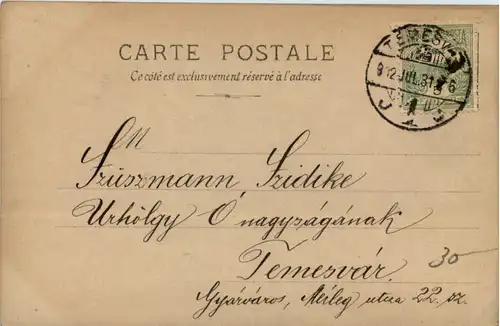 CARTE POSTALE
Ce côté est exclusivement réservé à l'adresse
TEMESV
912 JUL 31
Szüszmann Szidike
Urhölgy Ő nagyságának
Temesvár.
Gyárváros, Mérleg utca 22. sz.
30